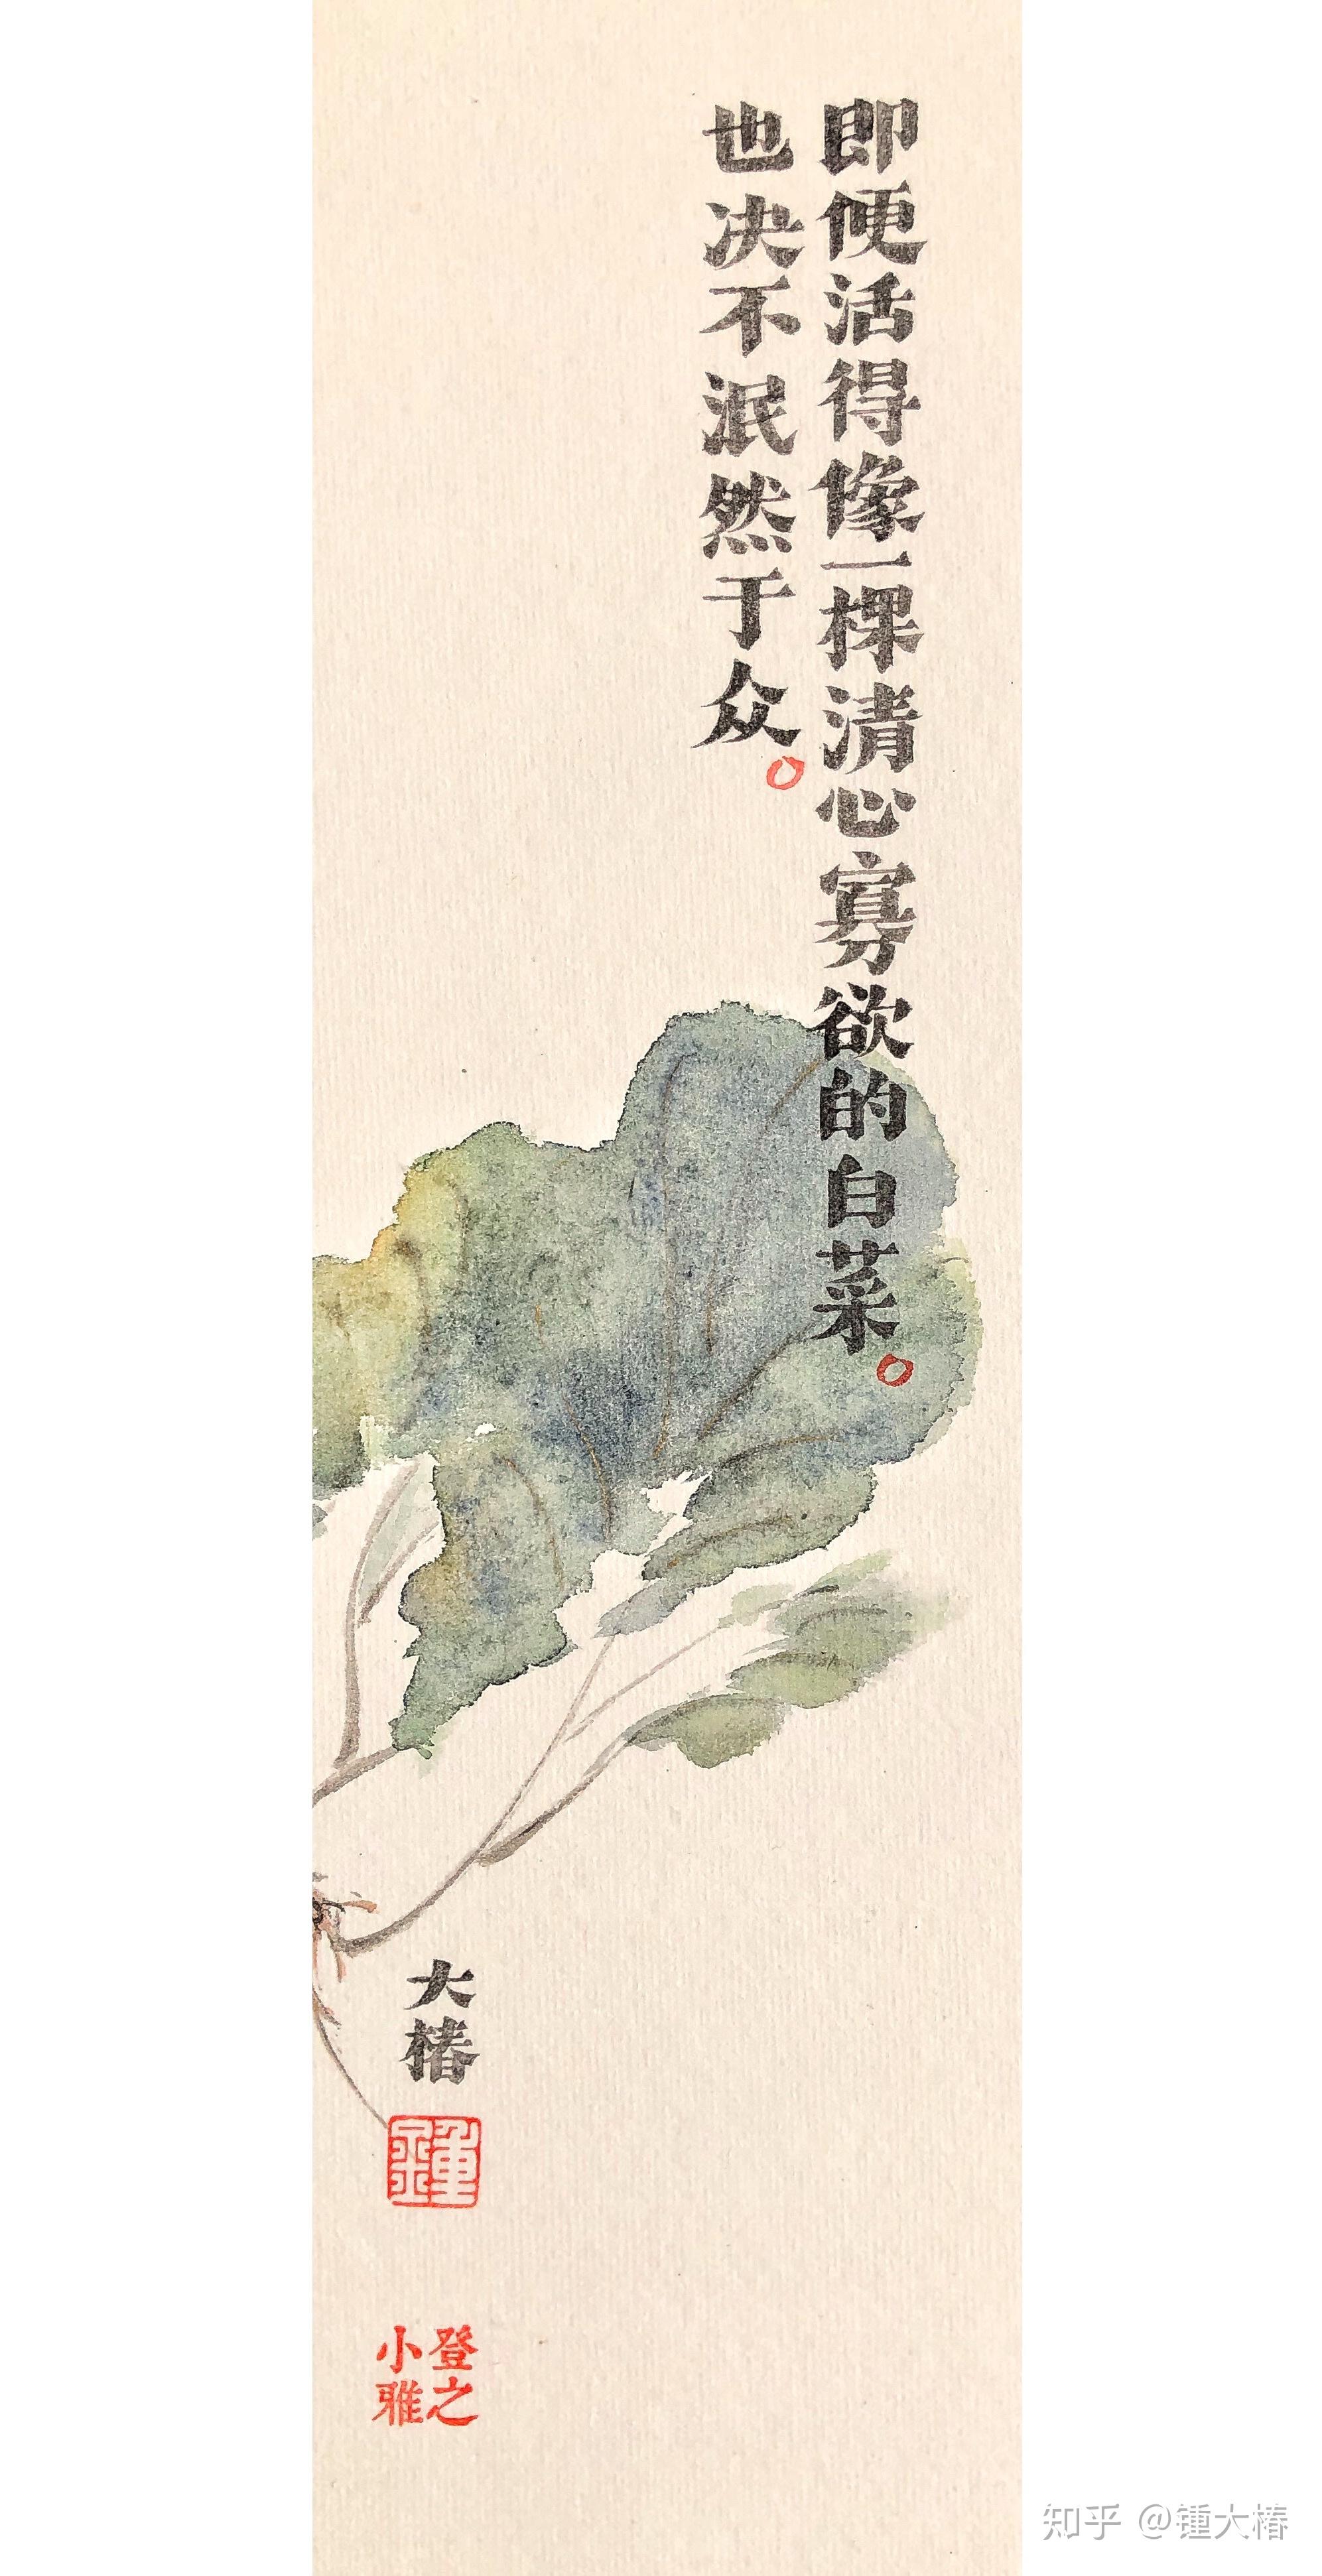 即便活得像一棵清心寡欲的白菜。
也决不泯然于众。
大椿
鍾
登之
小雅
知乎 @锺大椿